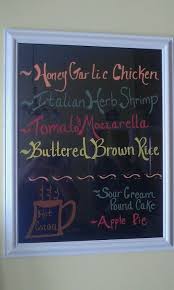 ~Honey Garlic Chicken
~Italian Herb Shrimp
~Tomato Mozzarella
~Buttered Brown Rice
~Sour Cream
Pound Cake
~Apple Pie
Hot
Cocoa